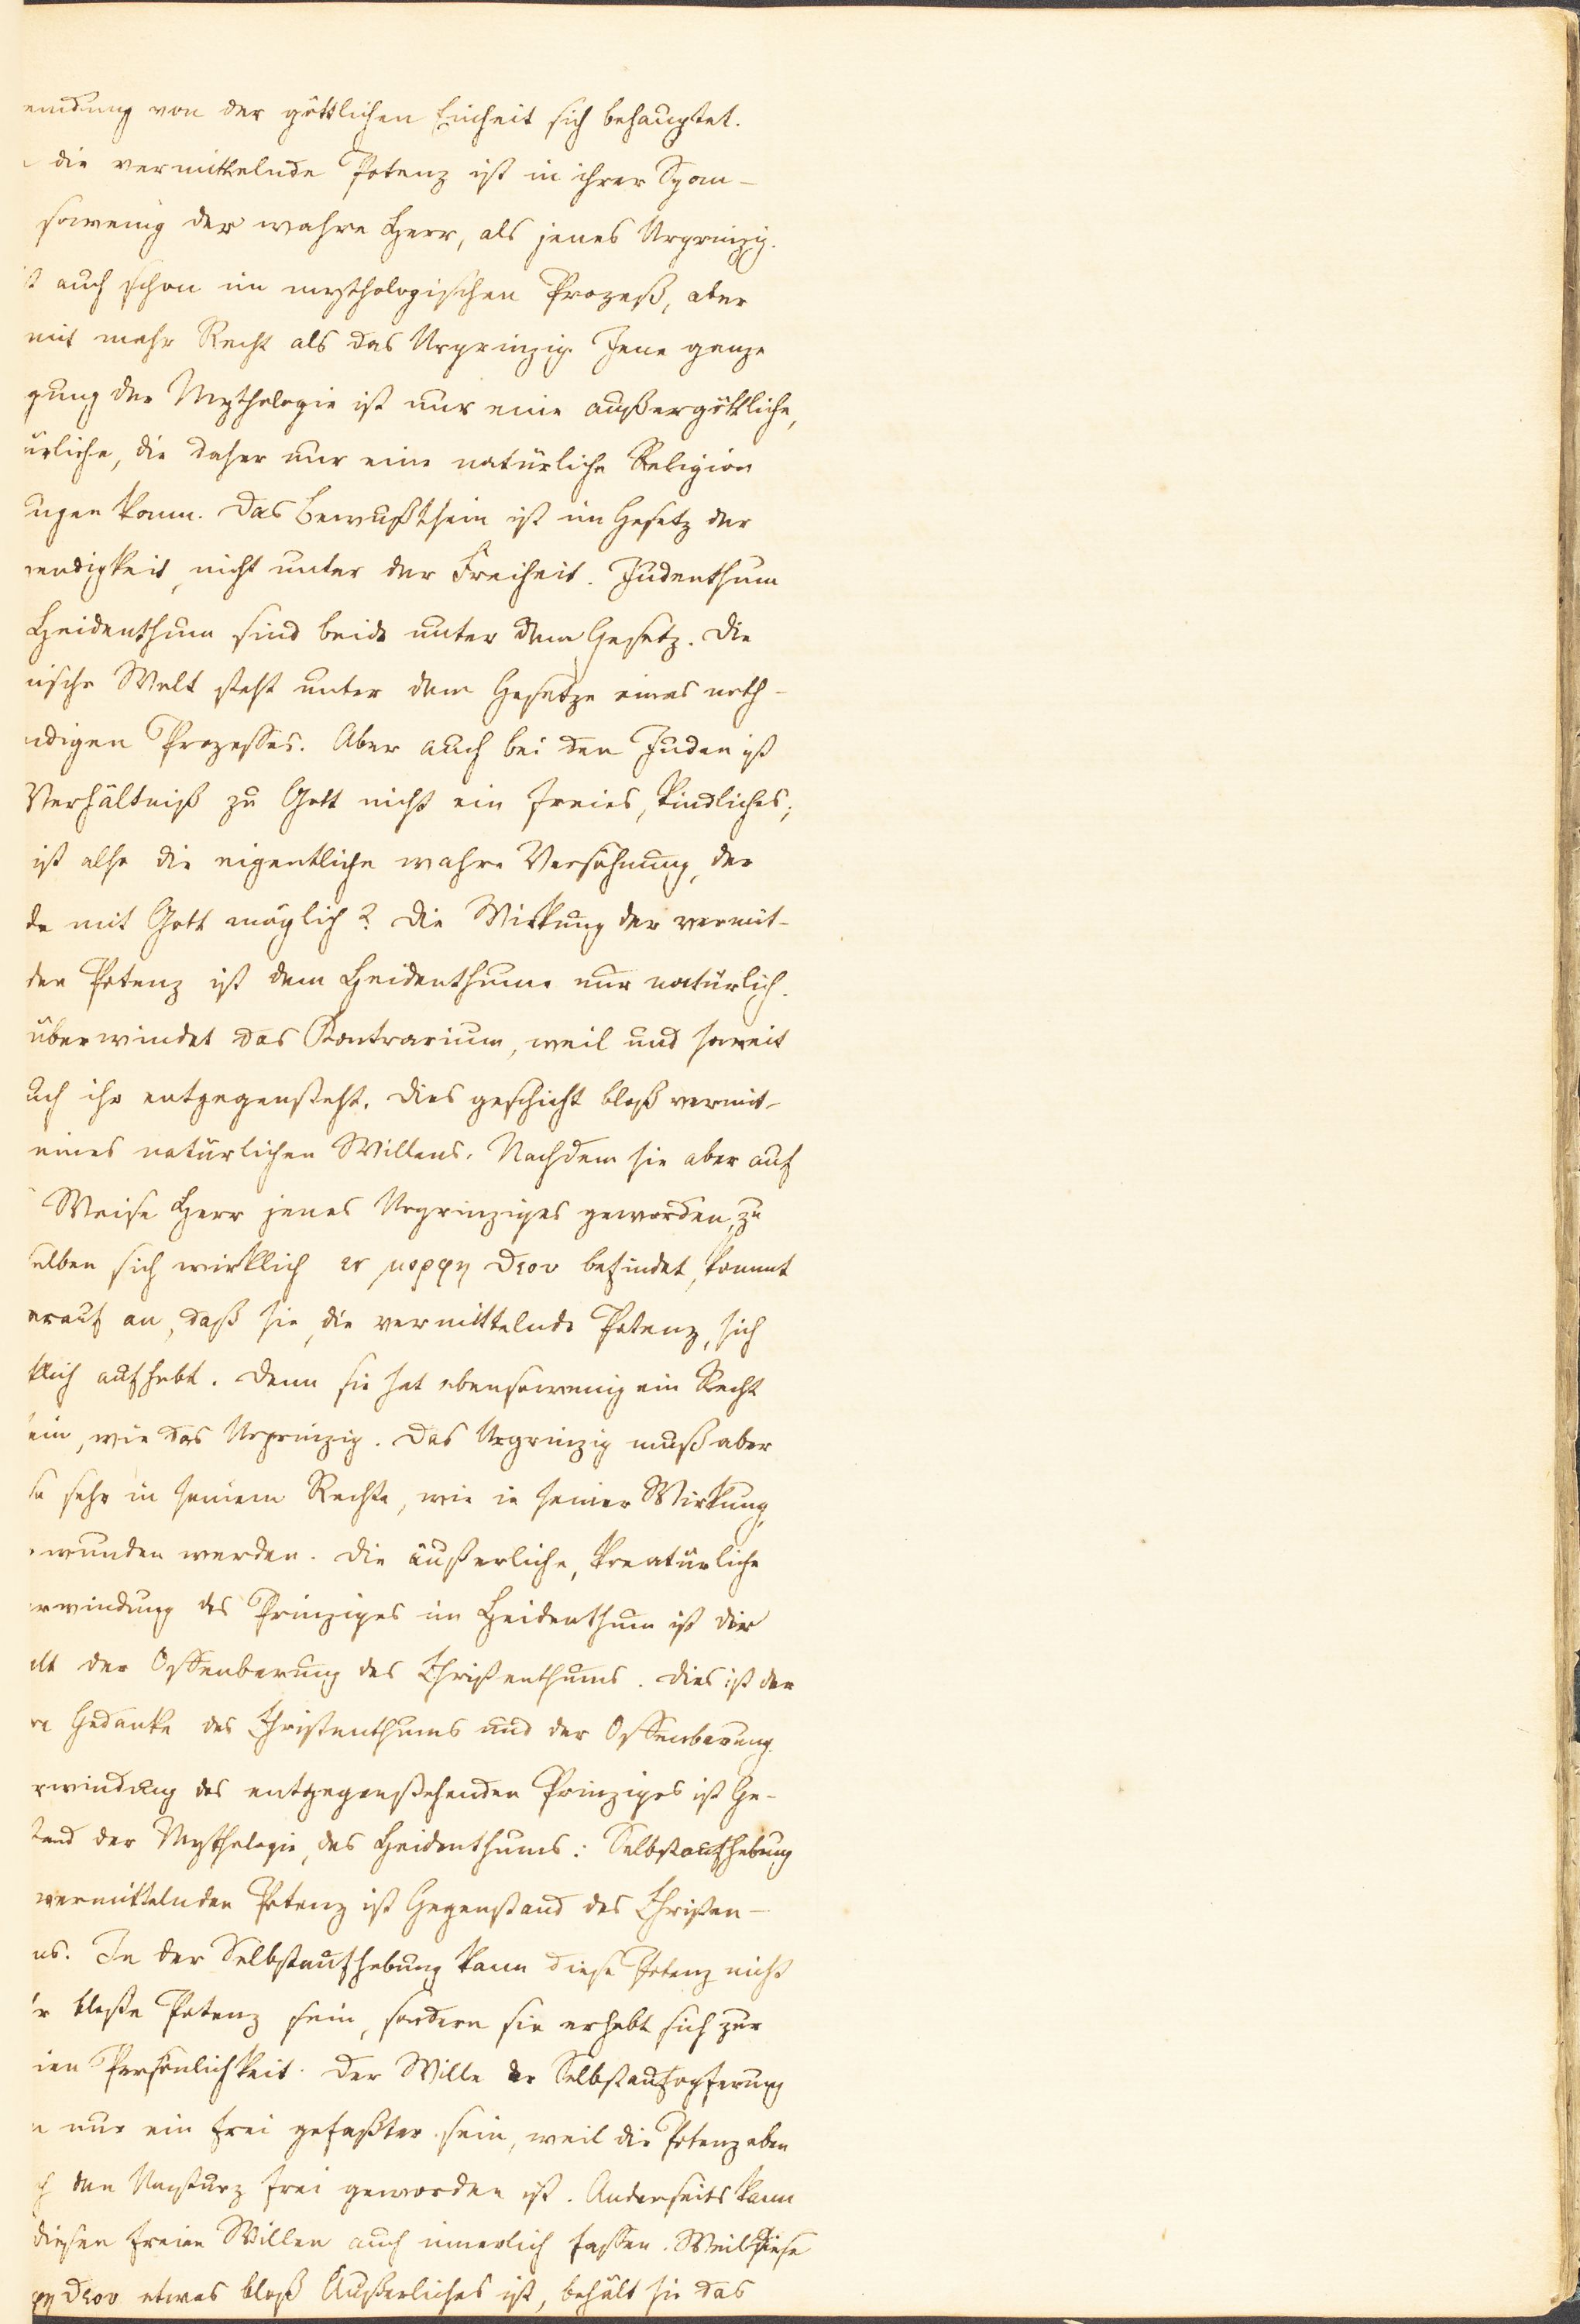 endung von der göttlichen Einheit sich behauptet.
die vermittelnde Potenz ist in ihrer Span-
sowenig der wahre Herr, als jenes Urprinzip.
auch schon im mythologischen Prozeß, aber
mit mehr Recht als das Urprinzip. Jene ganze
gung der Mythologie ist nur eine außergöttliche,
ürliche, die daher nur eine natürliche Religion
ugen kann. Das Bewußtsein ist im Gesetz der
endigkeit, nicht unter der Freiheit. Judenthum
Heidenthum sind beide unter dem Gesetz. Die
nische Welt steht unter dem Gesetze eines noth-
ndigen Prozesses. Aber auch bei den Juden ist
Verhältniß zu Gott nicht ein freies, kindliches;
ist also die eigentliche wahre Versöhnung, der
de mit Gott möglich? Die Wirkung der vermit-
den Potenz ist dem Heidenthume nur natürlich.
überwindet das Kontrarium, weil und soweit
ihr entgegensteht. Dies geschieht bloß vermit-
eines natürlichen Willens. Nachdem sie aber auf
Weise Herr jenes Urprinzipes geworden, zu
selben sich wirklich εν μορφη θεου befindet, kommt
erauf an, daß sie, die vermittelnde Potenz, sich
tlich aufhebt. Denn sie hat ebensowenig ein Recht
ein, wie das Urprinzip. Das Urprinzip muß aber
so sehr in seinem Rechte, wie in seiner Wirkung,
wunden werden. Die äußerliche, kreatürliche
rwindung des Prinzipes im Heidenthum ist die
alt der Offenbarung des Christenthums. Dies ist der
re Gedanke des Christenthums und der Offenbarung.
rwindung des entgegenstehenden Prinzipes ist Ge-
tand der Mythologie, des Heidenthums: Selbstaufhebung
vermittelnden Potenz ist Gegenstand des Christen-
ms. In der Selbstaufhebung kann diese Potenz nicht
r bloße Potenz sein, sondern sie erhebt sich zur
ien Persönlichkeit. Der Wille der Selbstaufopferung
n nur ein frei gefaßter sein, weil die Potenz eben
ch den Umsturz frei geworden ist. Anderseits kann
diesen freien Willen auch innerlich fassen. Weil diese
φη θεου etwas bloß Äußerliches ist, behält sie das